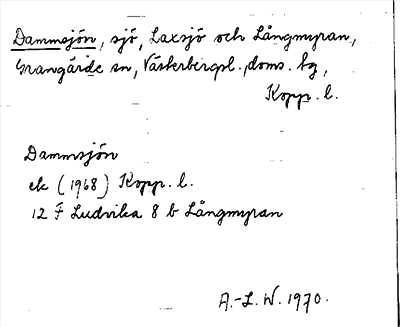 Dammsjön, sjö, Laxsjö och Långmyran,
Grangärde sn, Västerbergsl. doms. hg,
Kopp. l.
Dammsjön
ek (1968) Kopp. l.
12 F Ludvika 8 b Långmyran
A.-L. W. 1970.